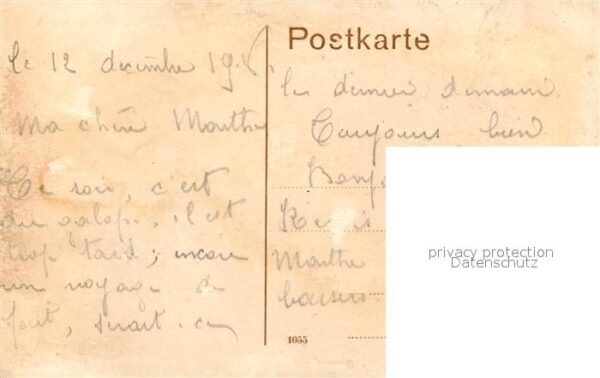 Postkarte
le 12 décembre 19
Ma chère Marthe
Ce soir, c'est
au galop, il est
trop tard; encore
un voyage de
fait, serait-ce
le dernier demain
Toujours bien
Marthe
baisers
1055
privacy protection
Datenschutz